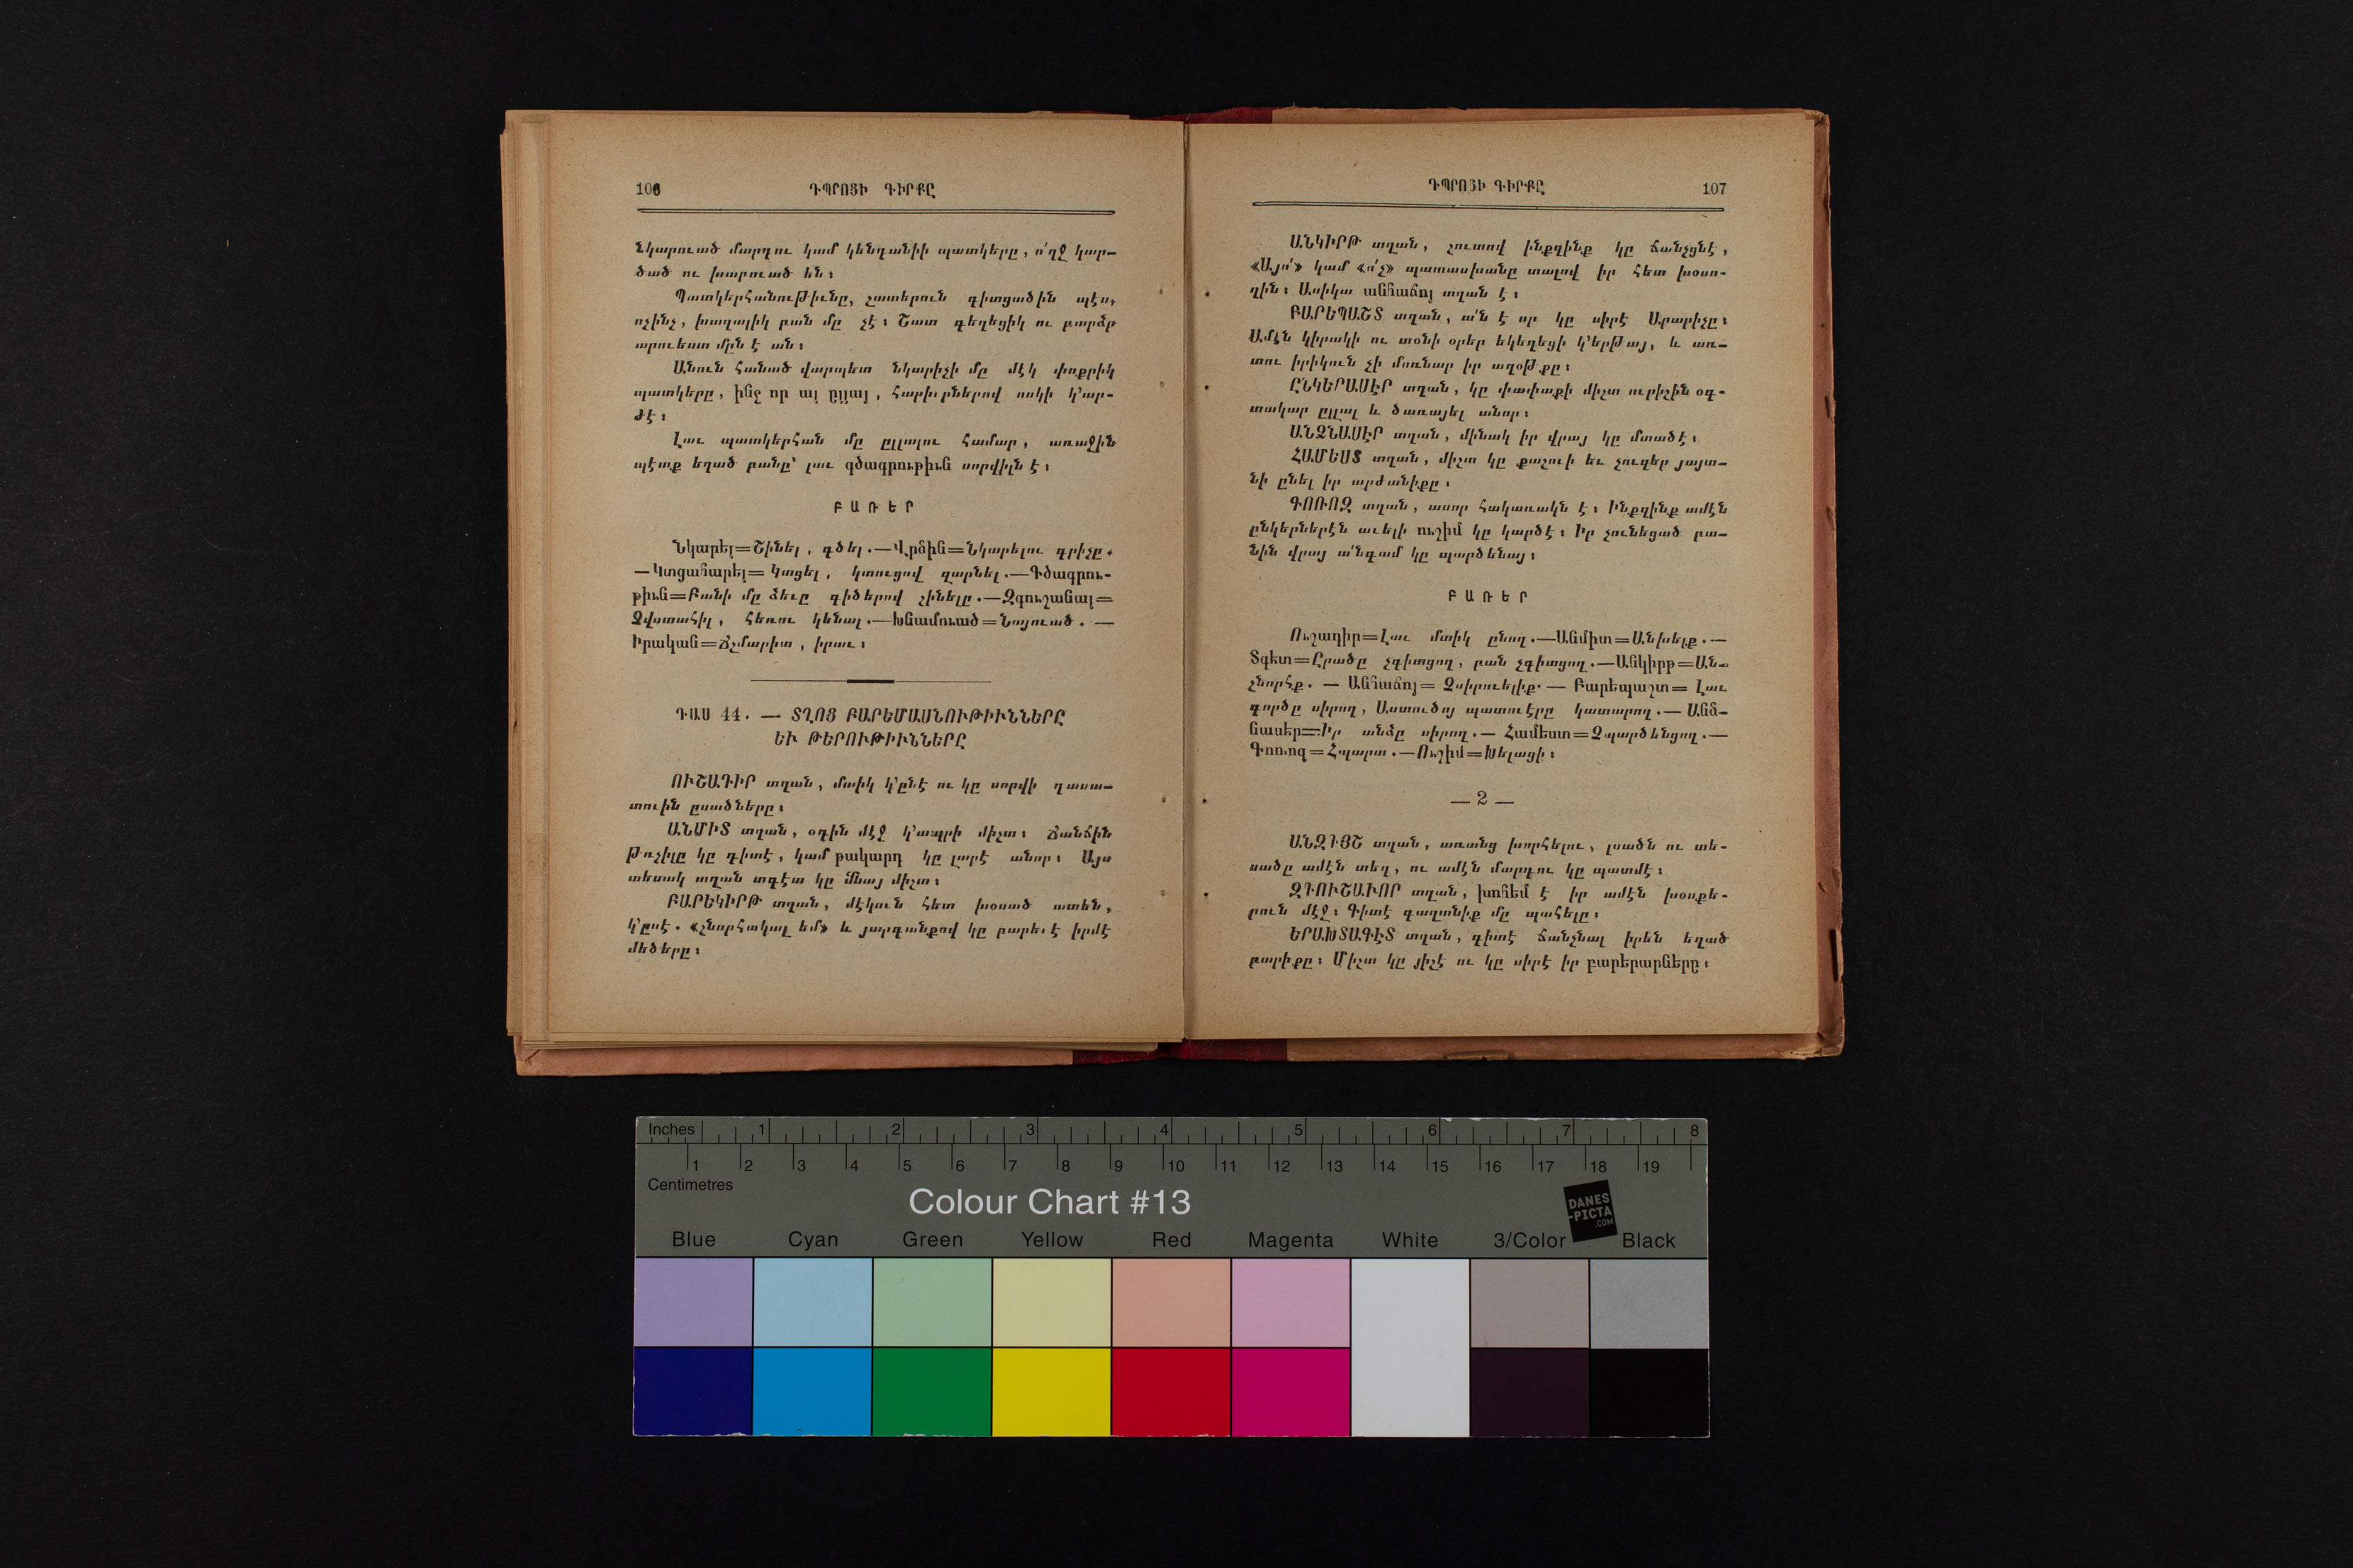 106 ԴՊՐՈՑԻ ԳԻՐՔԸ
նկարուած մարդու կամ կենդանիի պատկերը, ո՛ղջ կար-
ծած ու խաբուած են։
Պատկերհանութիւնը, շատերուն գիտցածին պէս,
ոչինչ, խաղալիկ բան մը չէ։ Շատ գեղեցիկ ու բարձր
արուեստ մըն է ան։
Անուն հանած վարպետ նկարիչի մը մէկ փոքրիկ
պատկերը, ինչ որ ալ ըլլայ, հարիւրներով ոսկի կ՚ար-
ժէ։
Լաւ պատկերհան մը ըլլալու համար, առաջին
պէտք եղած բանը՝ լաւ գծագրութիւն սորվիլն է։
ԲԱՌԵՐ
Նկարել=Շինել, գծել.—Վրձին=Նկարելու գրիչը.
—Կտցահարել=Կտցել, կտուցով զարնել.—Գծագրու-
թիւն=Բանի մը ձեւը գիծերով շինելը.—Զգուշանալ=
Չվստահիլ, հեռու կենալ.—Խնամուած=Նայուած. —
Իրական=Ճշմարիտ, իրաւ։
ԴԱՍ 44. — ՏՂՈՑ ԲԱՐԵՄԱՍՆՈՒԹԻՒՆՆԵՐԸ
ԵՒ ԹԵՐՈՒԹԻՒՆՆԵՐԸ
ՈՒՇԱԴԻՐ տղան, մտիկ կ՚ընէ ու կը սորվի դասա-
տուին ըսածները։
ԱՆՄԻՏ տղան, օդին մէջ կ՚ապրի միշտ։ Ճանճին
թռչիլը կը դիտէ, կամ թակարդ կը լարէ անոր։ Այս
տեսակ տղան տգէտ կը մնայ միշտ։
ԲԱՐԵԿԻՐԹ տղան, մէկուն հետ խօսած ատեն,
կ՚ըսէ. «շնորհակալ եմ» և յարգանքով կը բարեւէ իրմէ
մեծերը։
ԴՊՐՈՑԻ ԳԻՐՔԸ 107
ԱՆԿԻՐԹ տղան, շուտով ինքզինք կը ճանչցնէ,
«Այո՛» կամ «ո՛չ» պատասխանը տալով իր հետ խօսո-
ղին։ Ասիկա անհաճոյ տղան է։
ԲԱՐԵՊԱՇՏ տղան, ա՛ն է որ կը սիրէ Արարիչը։
Ամէն կիրակի ու տօնի օրեր եկեղեցի կ՚երթայ, և առ-
տու իրիկուն չի մոռնար իր աղօթքը։
ԸՆԿԵՐԱՍԷՐ տղան, կը փափաքի միշտ ուրիշին օգ-
տակար ըլլալ և ծառայել անոր։
ԱՆՁՆԱՍԷՐ տղան, մինակ իր վրայ կը մտածէ։
ՀԱՄԵՍՏ տղան, միշտ կը քաշուի եւ չուզեր յայտ-
նի ընել իր արժանիքը։
ԳՈՌՈԶ տղան, ասոր հակառակն է։ Ինքզինք ամէն
ընկերներէն աւելի ուշիմ կը կարծէ։ Իր չունեցած բա-
նին վրայ ա՛նգամ կը պարծենայ։
ԲԱՌԵՐ
Ուշադիր=Լաւ մտիկ ընող.—Անմիտ=Անխելք.—
Տգետ=Ըրածը չգիտցող, բան չգիտցող.—Անկիրթ=Ան-
շնորհք. — Անհաճոյ= Չսիրուելիք. — Բարեպաշտ= Լաւ
գործը սիրող, Աստուծոյ պատուէրը կատարող.— Անձ-
նասեր=Իր անձը սիրող.— Համեստ=Չպարծենցող.—
Գոռոզ=Հպարտ.—Ուշիմ=Խելացի։
— 2 —
ԱՆԶԳՈՅՇ տղան, առանց խորհելու, լսածն ու տե-
սածը ամէն տեղ, ու ամէն մարդու կը պատմէ։
ԶԳՈՒՇԱՒՈՐ տղան, խոհեմ է իր ամէն խօսքե-
րուն մէջ։ Գիտէ գաղտնիք մը պահելը։
ԵՐԱԽՏԱԳԷՏ տղան, գիտէ ճանչնալ իրեն եղած
բարիքը։ Միշտ կը յիշէ ու կը սիրէ իր բարերարները։
Inches 1 2 3 4 5 6 7 8
1 2 3 4 5 6 7 8 9 10 11 12 13 14 15 16 17 18 19
Centimetres
Colour Chart #13
DANES
-PICTA
.COM
Blue Cyan Green Yellow Red Magenta White 3/Color Black